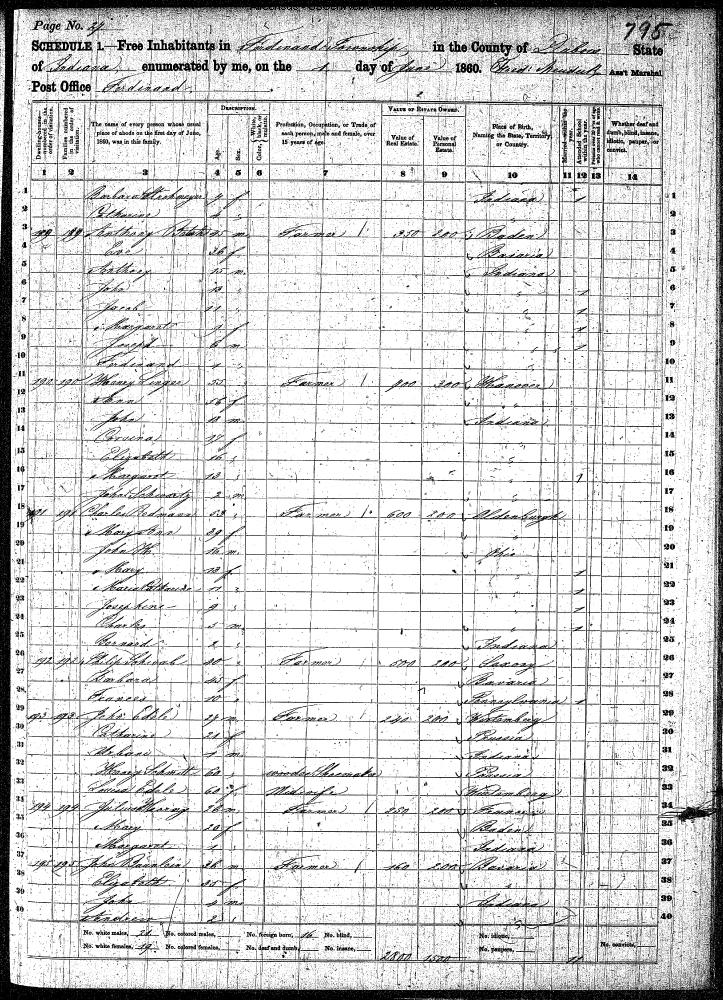 Page No. 24
795
SCHEDULE 1.—Free Inhabitants in Ferdinand Township in the County of Dubois State
of Indiana enumerated by me, on the 1 day of June 1860. Ass't Marshal
Post Office Ferdinand
DESCRIPTION. VALUE OF ESTATE OWNED.
The name of every person whose usual place of abode on the first day of June, 1860, was in this family. Age. Sex. Profession, Occupation, or Trade of each person, male and female, over 15 years of age. Value of Real Estate. Value of Personal Estate. Place of Birth, Naming the State, Territory, or Country. Whether deaf and dumb, blind, insane, idiotic, pauper, or convict.
1 2 3 4 5 6 7 8 9 10 11 12 13 14
1 Barbara Indiana 1
2 Catharine
3 189 189 Anthony m Farmer 350 200 Baden
4 Eva 36 f Bavaria
5 Anthony 15 m Indiana
6 John 13 1
7 Jacob 11 1
8 Margaret f 1
9 Joseph 6 m 1
10 Ferdinand 1
11 190 190 Henry Singer 55 Farmer 800 300 Hanover
12 Ann 56 f
13 John m Indiana
14 17 f
15 Elizabeth 16
16 Margaret 13 1
17 John Schwartz 2 m
18 191 191 Charles Bedmann 53 Farmer 600 200 Oldenburgh
19 Mary Ann 39 f
20 John H. 16 m Ohio
21 Mary 13 f 1
22 Maria Catharine 11 1
23 Josephine 9 1
24 Charles 5 m 1
25 Bernard 2 Indiana
26 192 192 Philip Schwab 40 Farmer 500 200 Saxony
27 Barbara 45 f Bavaria
28 Frances 10 Pennsylvania 1
29 193 193 John Edele 29 m Farmer 240 200 Wurtemberg
30 Catharine 21 f Prussia
31 Urban 1 m Indiana
32 Henry Schmitt 60 wooden Shoemaker Prussia
33 Louisa Edele 60 f Midwife Wurtemberg
34 194 194 Julius 26 m Farmer 250 200 France
35 Mary 20 f Baden
36 Margaret 1 Indiana
37 195 195 John 36 m Farmer 160 200 Bavaria
38 Elizabeth 35 f
39 John 4 m Indiana
40 Andrew 2
No. white males, 21 No. colored males, No. foreign born, 16 No. blind, No. idiotic, No. convicts,
No. white females, 19 No. colored females, No. deaf and dumb, No. insane, No. paupers,
2800 1500 11